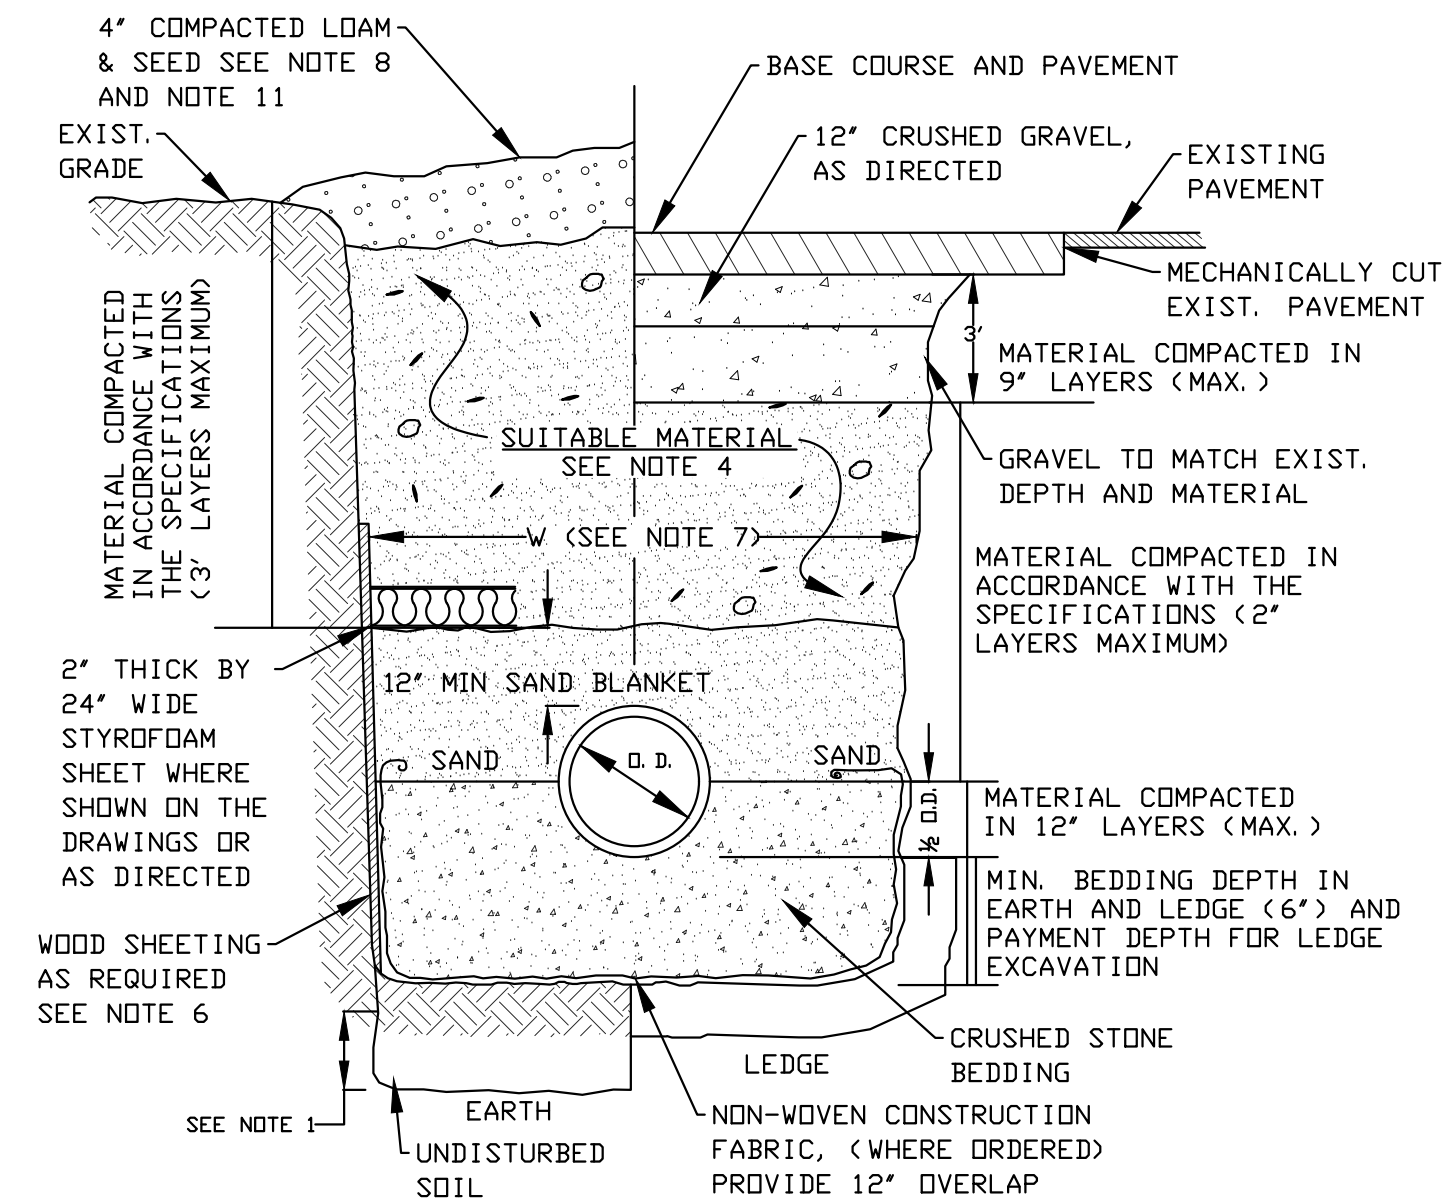 4" COMPACTED LOAM
& SEED SEE NOTE 8
AND NOTE 11
EXIST.
GRADE
BASE COURSE AND PAVEMENT
12" CRUSHED GRAVEL,
AS DIRECTED
EXISTING
PAVEMENT
MECHANICALLY CUT
EXIST. PAVEMENT
3'
MATERIAL COMPACTED IN
9" LAYERS (MAX.)
MATERIAL COMPACTED
IN ACCORDANCE WITH
THE SPECIFICATIONS
(3' LAYERS MAXIMUM)
SUITABLE MATERIAL
SEE NOTE 4
GRAVEL TO MATCH EXIST.
DEPTH AND MATERIAL
W (SEE NOTE 7)
MATERIAL COMPACTED IN
ACCORDANCE WITH THE
SPECIFICATIONS (2"
LAYERS MAXIMUM)
2" THICK BY
24" WIDE
STYROFOAM
SHEET WHERE
SHOWN ON THE
DRAWINGS OR
AS DIRECTED
12" MIN SAND BLANKET
SAND
O. D.
SAND
½ O.D.
MATERIAL COMPACTED
IN 12" LAYERS (MAX.)
MIN. BEDDING DEPTH IN
EARTH AND LEDGE (6") AND
PAYMENT DEPTH FOR LEDGE
EXCAVATION
WOOD SHEETING
AS REQUIRED
SEE NOTE 6
CRUSHED STONE
BEDDING
LEDGE
EARTH
SEE NOTE 1
UNDISTURBED
SOIL
NON-WOVEN CONSTRUCTION
FABRIC, (WHERE ORDERED)
PROVIDE 12" OVERLAP